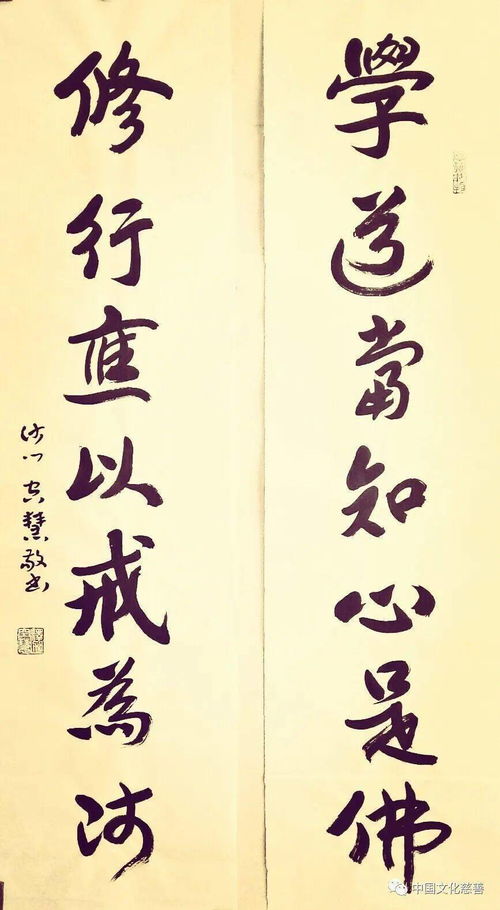 學道當知心是佛
修行應以戒為师
沙门慧敬书
中国文化慈善